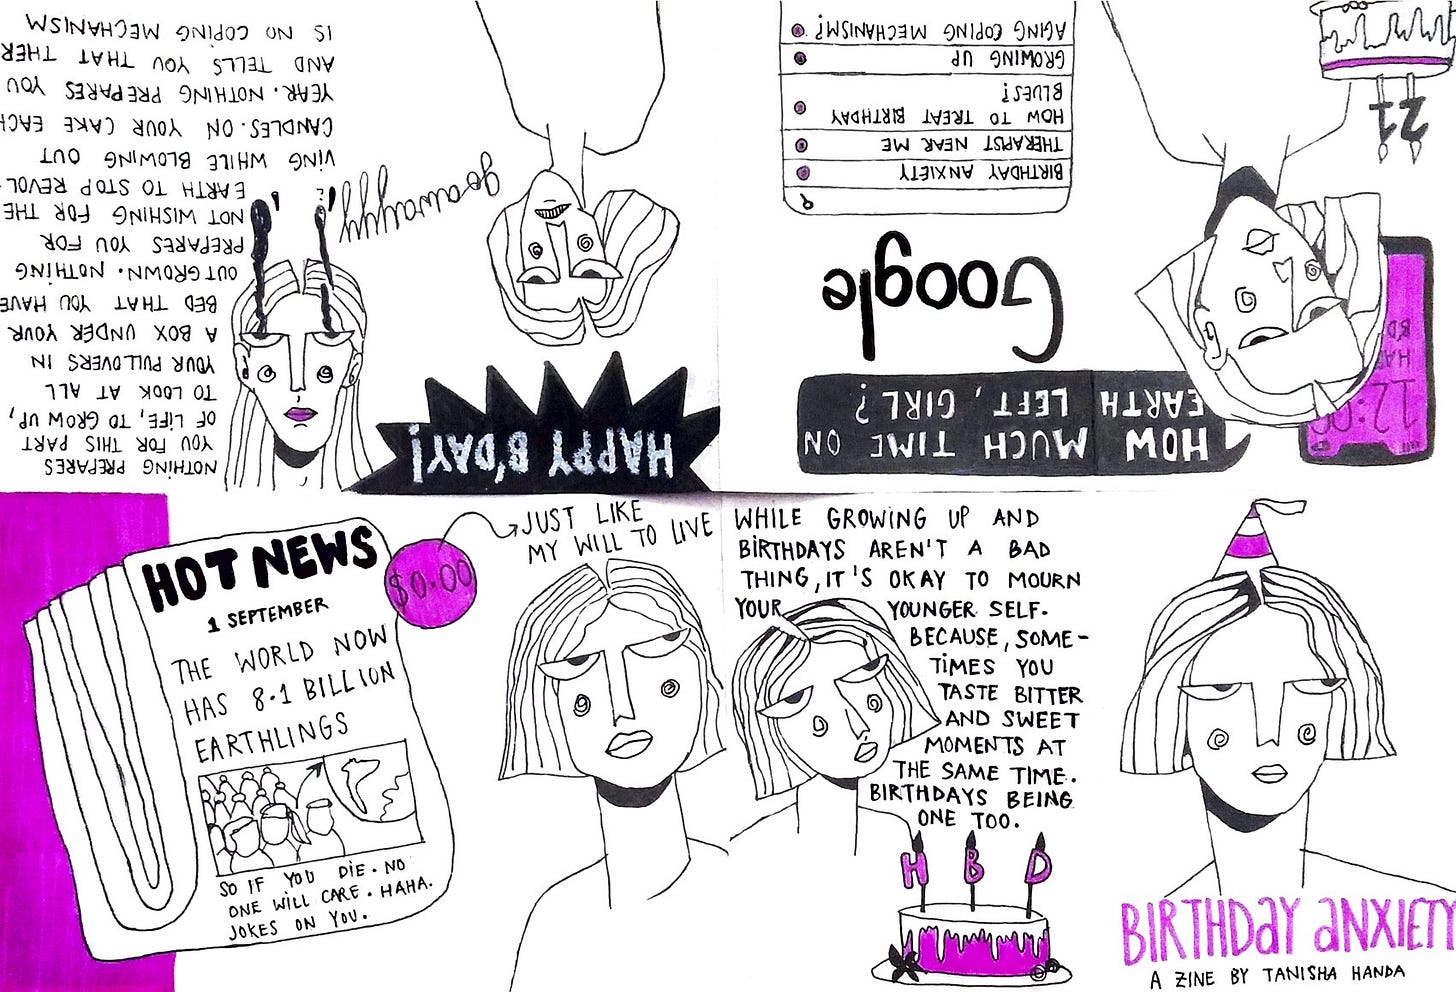 BIRTHDAY ANXIETY
A ZINE BY TANISHA HANDA
21
12:00
HA
B'D
HOW MUCH TIME ON
EARTH LEFT, GIRL?
Google
BIRTHDAY ANXIETY
THERAPIST NEAR ME
HOW TO TREAT BIRTHDAY
BLUES?
GROWING UP
AGING COPING MECHANISM?
HAPPY B'DAY!
go awayyy
NOTHING PREPARES
YOU FOR THIS PART
OF LIFE, TO GROW UP,
TO LOOK AT ALL
YOUR PULLOVERS IN
A BOX UNDER YOUR
BED THAT YOU HAVE
OUTGROWN. NOTHING
PREPARES YOU FOR
NOT WISHING FOR THE
EARTH TO STOP REVOL-
VING WHILE BLOWING OUT
CANDLES. ON YOUR CAKE EACH
YEAR. NOTHING PREPARES YOU
AND TELLS YOU THAT THERE
IS NO COPING MECHANISM
HOT NEWS
1 SEPTEMBER
THE WORLD NOW
HAS 8.1 BILLION
EARTHLINGS
SO IF YOU DIE. NO
ONE WILL CARE. HAHA.
JOKES ON YOU.
$0.00
JUST LIKE
MY WILL TO LIVE
WHILE GROWING UP AND
BIRTHDAYS AREN'T A BAD
THING, IT'S OKAY TO MOURN
YOUR YOUNGER SELF.
BECAUSE, SOME-
TIMES YOU
TASTE BITTER
AND SWEET
MOMENTS AT
THE SAME TIME.
BIRTHDAYS BEING
ONE TOO.
H B D